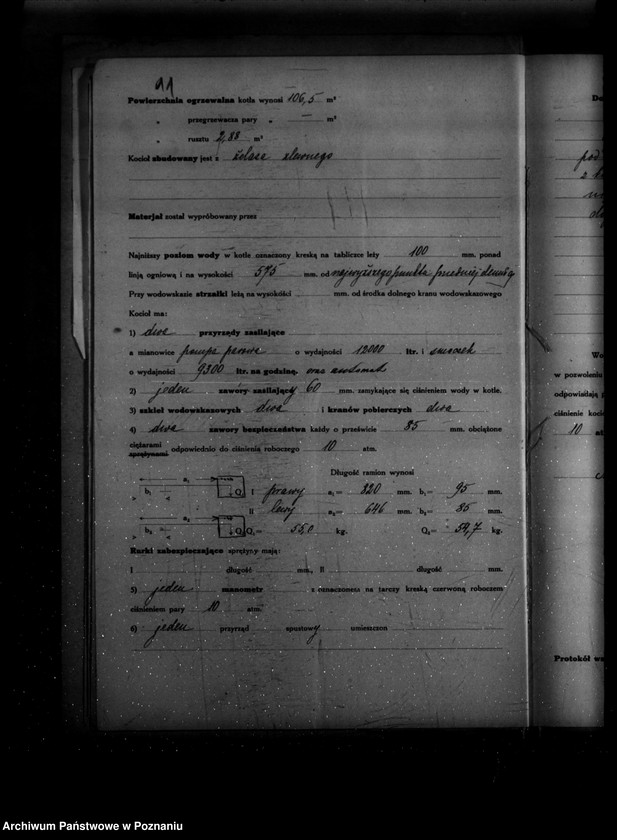 11
Powierzchnia ogrzewalna kotła wynosi 106,5 m²
„ przegrzewacza pary „ — m²
„ rusztu 2,88 m²
Kocioł zbudowany jest z żelaza zlewnego
Materjał został wypróbowany przez
Najniższy poziom wody w kotle oznaczony kreską na tabliczce leży 100 mm. ponad
linją ogniową i na wysokości 575 mm. od najwyższego punktu przedniej dennicy
Przy wodowskazie strzałki leżą na wysokości mm. od środka dolnego kranu wodowskazowego
Kocioł ma:
1) dwa przyrządy zasilające
a mianowicie pompa parowa o wydajności 12000 ltr. i smoczek
o wydajności 9300 ltr. na godzinę. oraz
2) jeden zawory zasilający 60 mm. zamykające się ciśnieniem wody w kotle.
3) szkieł wodowskazowych dwa i kranów pobierczych dwa
4) dwa zawory bezpieczeństwa każdy o prześwicie 85 mm. obciążone
ciężarami
sprężynami odpowiednio do ciśnienia roboczego 10 atm.
Długość ramion wynosi
a₁ b₁ Q I prawy a₁= 820 mm. b₁= 95 mm.
II lewy a₂= 646 mm. b₂= 85 mm.
a₂ b₂ Q₂ Q₁= 55,0 kg. Q₂= 59,7 kg.
Rurki zabezpieczające sprężyny mają:
I długość mm., II długość mm.
5) jeden manometr z oznaczoness na tarczy kreską czerwoną roboczem
ciśnieniem pary 10 atm.
6) jeden przyrząd spustowy umieszczon
w pozwoleniu
odpowiadają
ciśnienie
10 at
Protokół
Archiwum Państwowe w Poznaniu